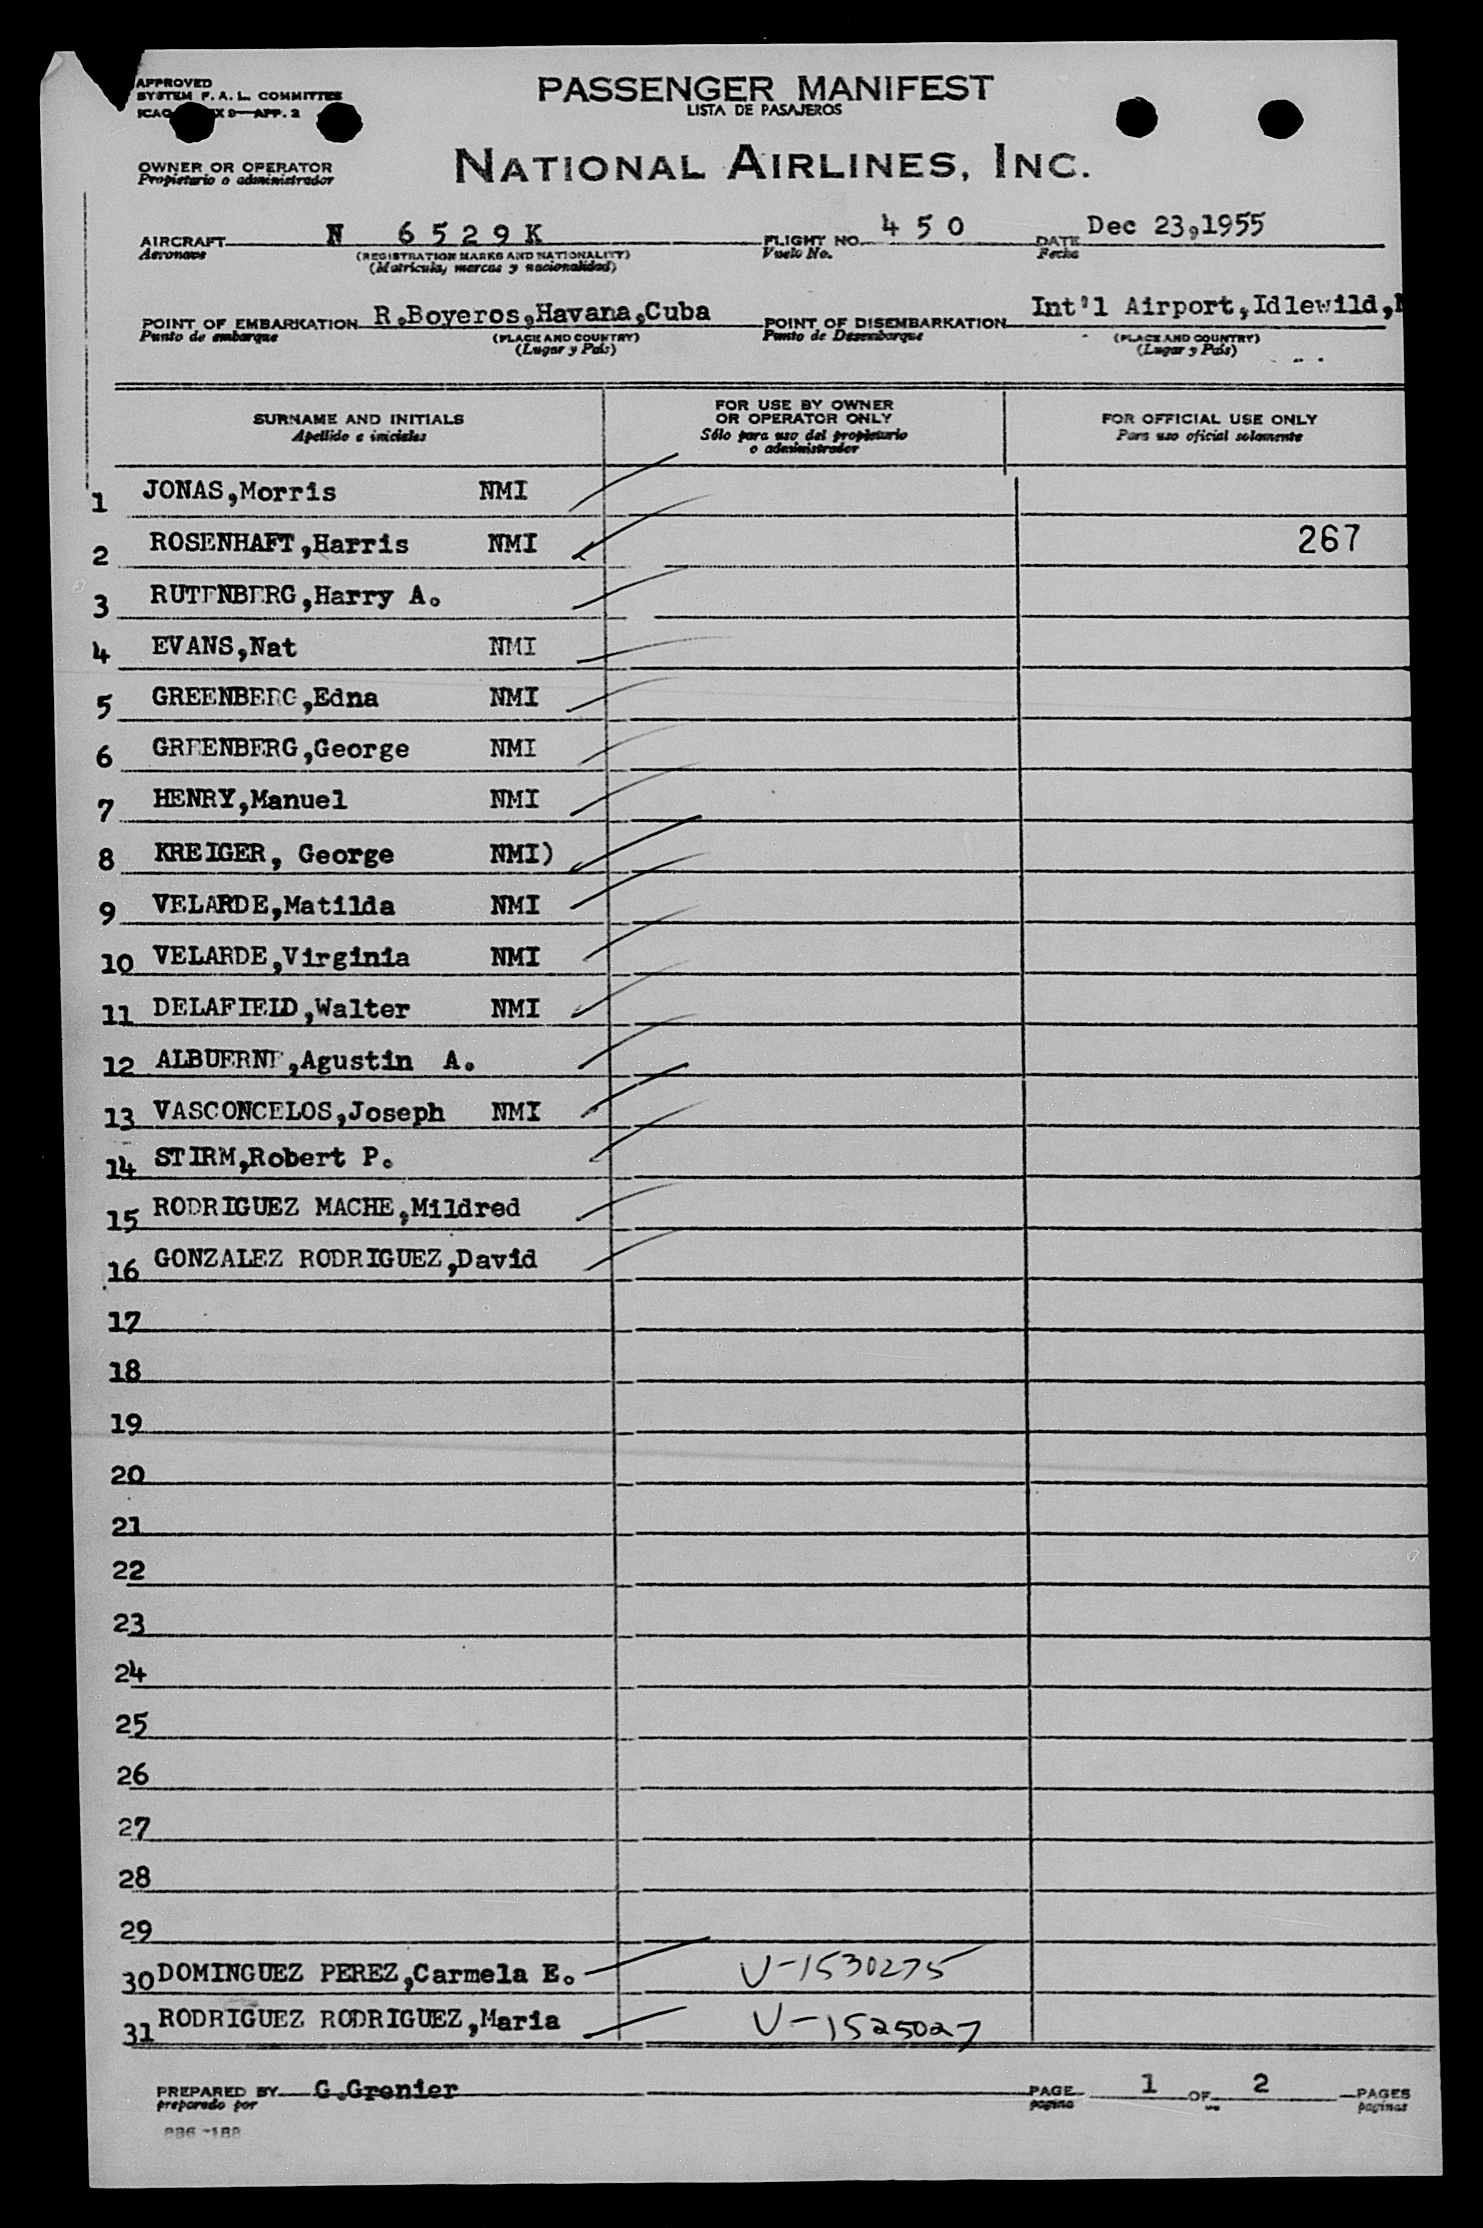 APPROVED
SYSTEM F. A. L. COMMITTEE
ICAO X 9—APP. 2
PASSENGER MANIFEST
LISTA DE PASAJEROS
OWNER OR OPERATOR
Propietario o administrador
NATIONAL AIRLINES, INC.
AIRCRAFT N 6529K FLIGHT NO. 450 DATE Dec 23,1955
Aeronave (REGISTRATION MARKS AND NATIONALITY) Vuelo No. Fecha
(Matricula, marcas y nacionalidad)
POINT OF EMBARKATION R.Boyeros,Havana,Cuba POINT OF DISEMBARKATION Int'l Airport,Idlewild,N
Punto de embarque (PLACE AND COUNTRY) Punto de Desembarque (PLACE AND COUNTRY)
(Lugar y País) (Lugar y País)
SURNAME AND INITIALS
Apellido e iniciales
FOR USE BY OWNER
OR OPERATOR ONLY
Sólo para uso del propietario
o administrador
FOR OFFICIAL USE ONLY
Para uso oficial solamente
1 JONAS,Morris NMI
2 ROSENHAFT,Harris NMI 267
3 RUTENBERG,Harry A.
4 EVANS,Nat NMI
5 GREENBERG,Edna NMI
6 GREENBERG,George NMI
7 HENRY,Manuel NMI
8 KREIGER, George NMI)
9 VELARDE,Matilda NMI
10 VELARDE,Virginia NMI
11 DELAFIELD,Walter NMI
12 ALBUERNE,Agustin A.
13 VASCONCELOS,Joseph NMI
14 STIRM,Robert P.
15 RODRIGUEZ MACHE,Mildred
16 GONZALEZ RODRIGUEZ,David
17
18
19
20
21
22
23
24
25
26
27
28
29
30 DOMINGUEZ PEREZ,Carmela E. V-1530275
31 RODRIGUEZ RODRIGUEZ,Maria V-1525027
PREPARED BY G.Grenier PAGE 1 OF 2 PAGES
preparado por pagina de paginas